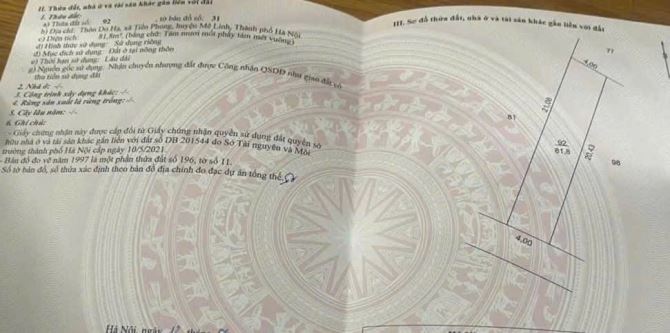 II. Thửa đất, nhà ở và tài sản khác gắn liền với đất
1. Thửa đất:
a) Thửa đất số: 92 , tờ bản đồ số: 31
b) Địa chỉ: Thôn Do Hạ, xã Tiền Phong, huyện Mê Linh, Thành phố Hà Nội
c) Diện tích: 81,8m², (bằng chữ: Tám mươi mốt phẩy tám mét vuông)
d) Hình thức sử dụng: Sử dụng riêng
đ) Mục đích sử dụng: Đất ở tại nông thôn
e) Thời hạn sử dụng: Lâu dài
g) Nguồn gốc sử dụng: Nhận chuyển nhượng đất được Công nhận QSDĐ như giao đất có
thu tiền sử dụng đất
2. Nhà ở: -/-
3. Công trình xây dựng khác: -/-
4. Rừng sản xuất là rừng trồng: -/-
5. Cây lâu năm: -/-
6. Ghi chú:
- Giấy chứng nhận này được cấp đổi từ Giấy chứng nhận quyền sử dụng đất quyền sở
hữu nhà ở và tài sản khác gắn liền với đất số DB 201544 do Sở Tài nguyên và Môi
trường thành phố Hà Nội cấp ngày 10/5/2021.
- Bản đồ đo vẽ năm 1997 là một phần thửa đất số 196, tờ số 11.
Số tờ bản đồ, số thửa xác định theo bản đồ địa chính đo đạc dự án tổng thể.
Hà Nội, ngày
III. Sơ đồ thửa đất, nhà ở và tài sản khác gắn liền với đất
77
4,00
21,08
81
92
81,8
20,43
98
4,00